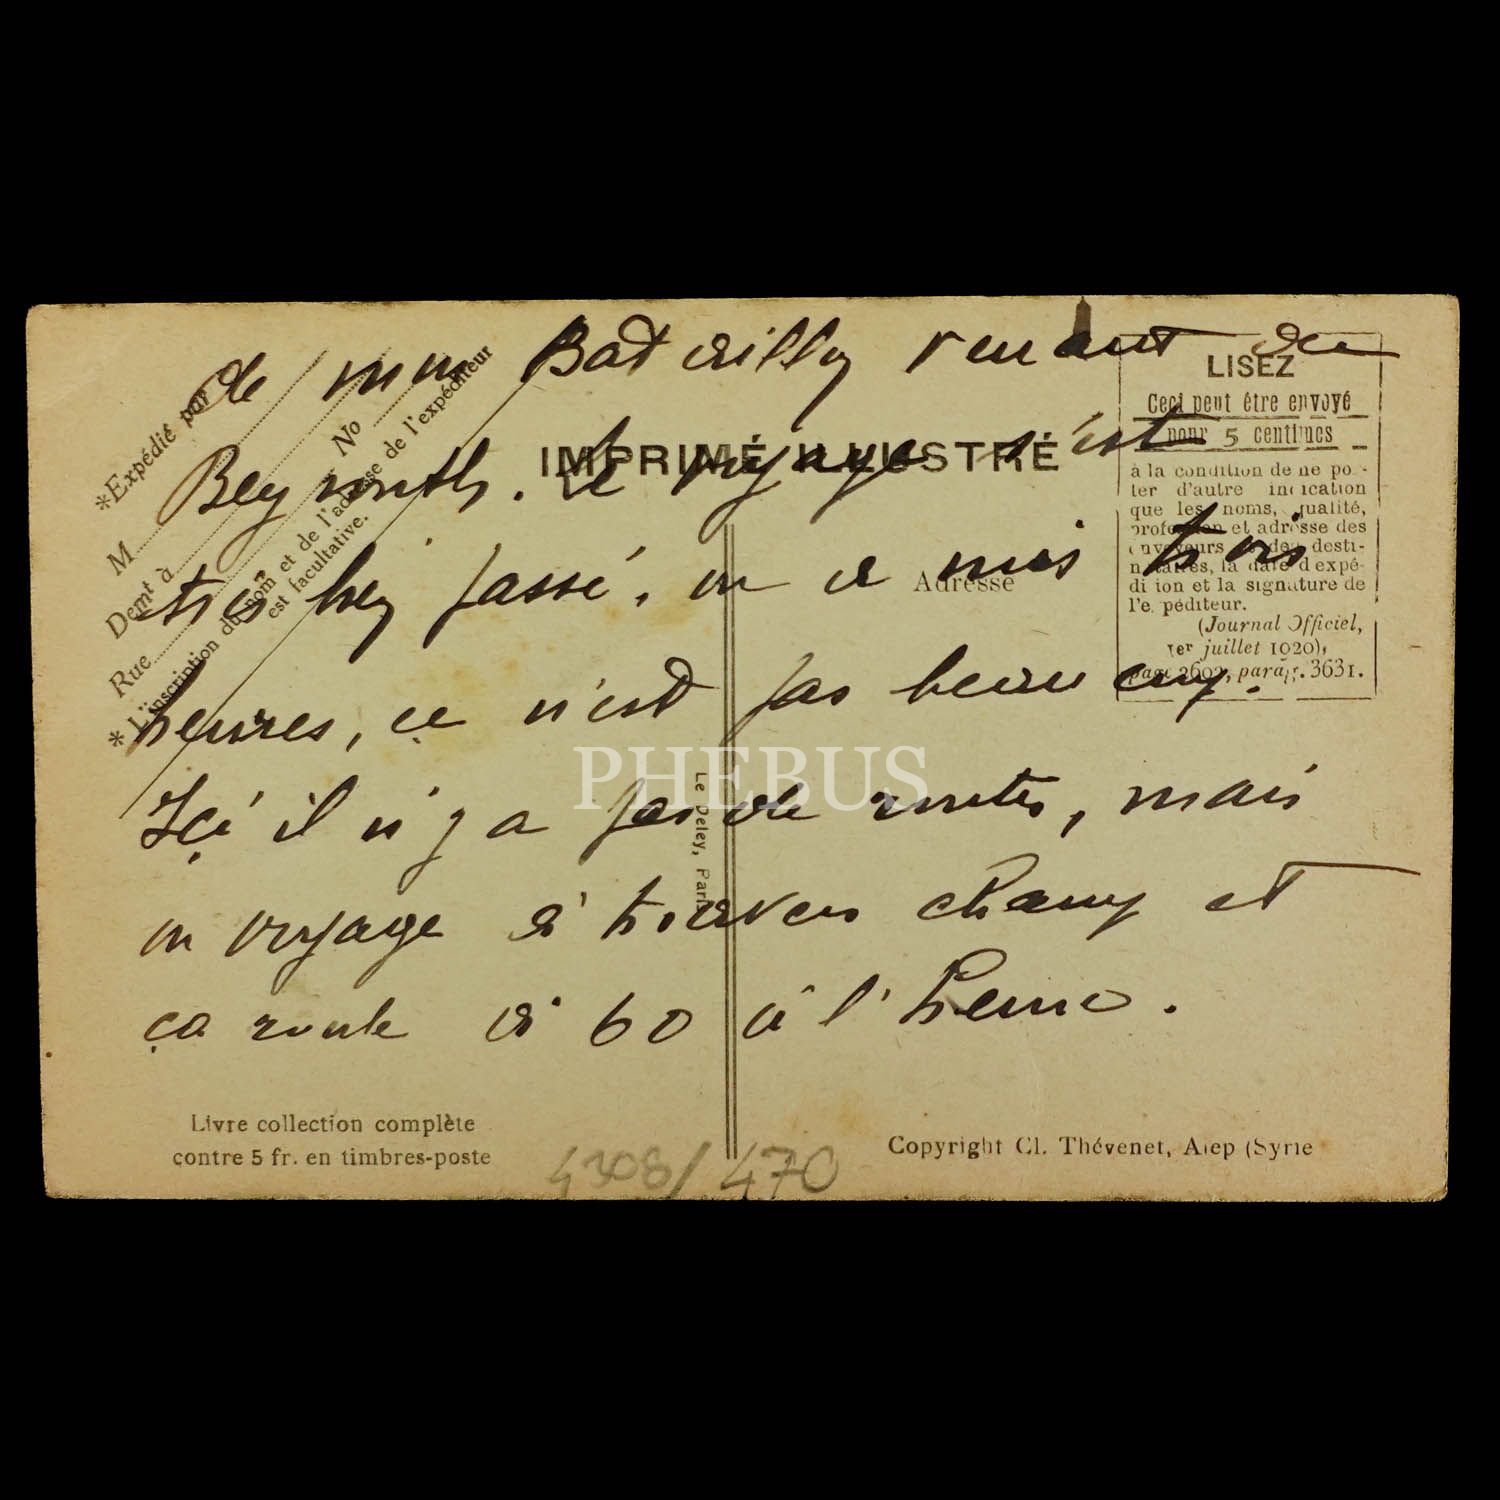 de mm Batailly venant de
Beyrouth. Le voyage s'est
très bien passé, on a mis trois
heures, ce n'est pas beaucoup.
Ici il n'y a pas de routes, mais
on voyage à travers champ et
ça roule à 60 à l'heure.
*Expédié par
M
No
Demt à
Rue
* L'inscription du nom et de l'adresse de l'expéditeur
est facultative.
IMPRIMÉ ILLUSTRÉ
Adresse
LISEZ
Ceci peut être envoyé
pour 5 centimes
à la condition de ne por-
ter d'autre indication
que les noms, qualité,
profession et adresse des
envoyeurs et des desti-
nataires, la date d'expé-
dition et la signature de
l'expéditeur.
(Journal Officiel,
1er juillet 1920),
page 3602, parag. 3631.
Le Deley, Paris
PHEBUS
Livre collection complète
contre 5 fr. en timbres-poste
4308/470
Copyright Cl. Thévenet, Alep (Syrie